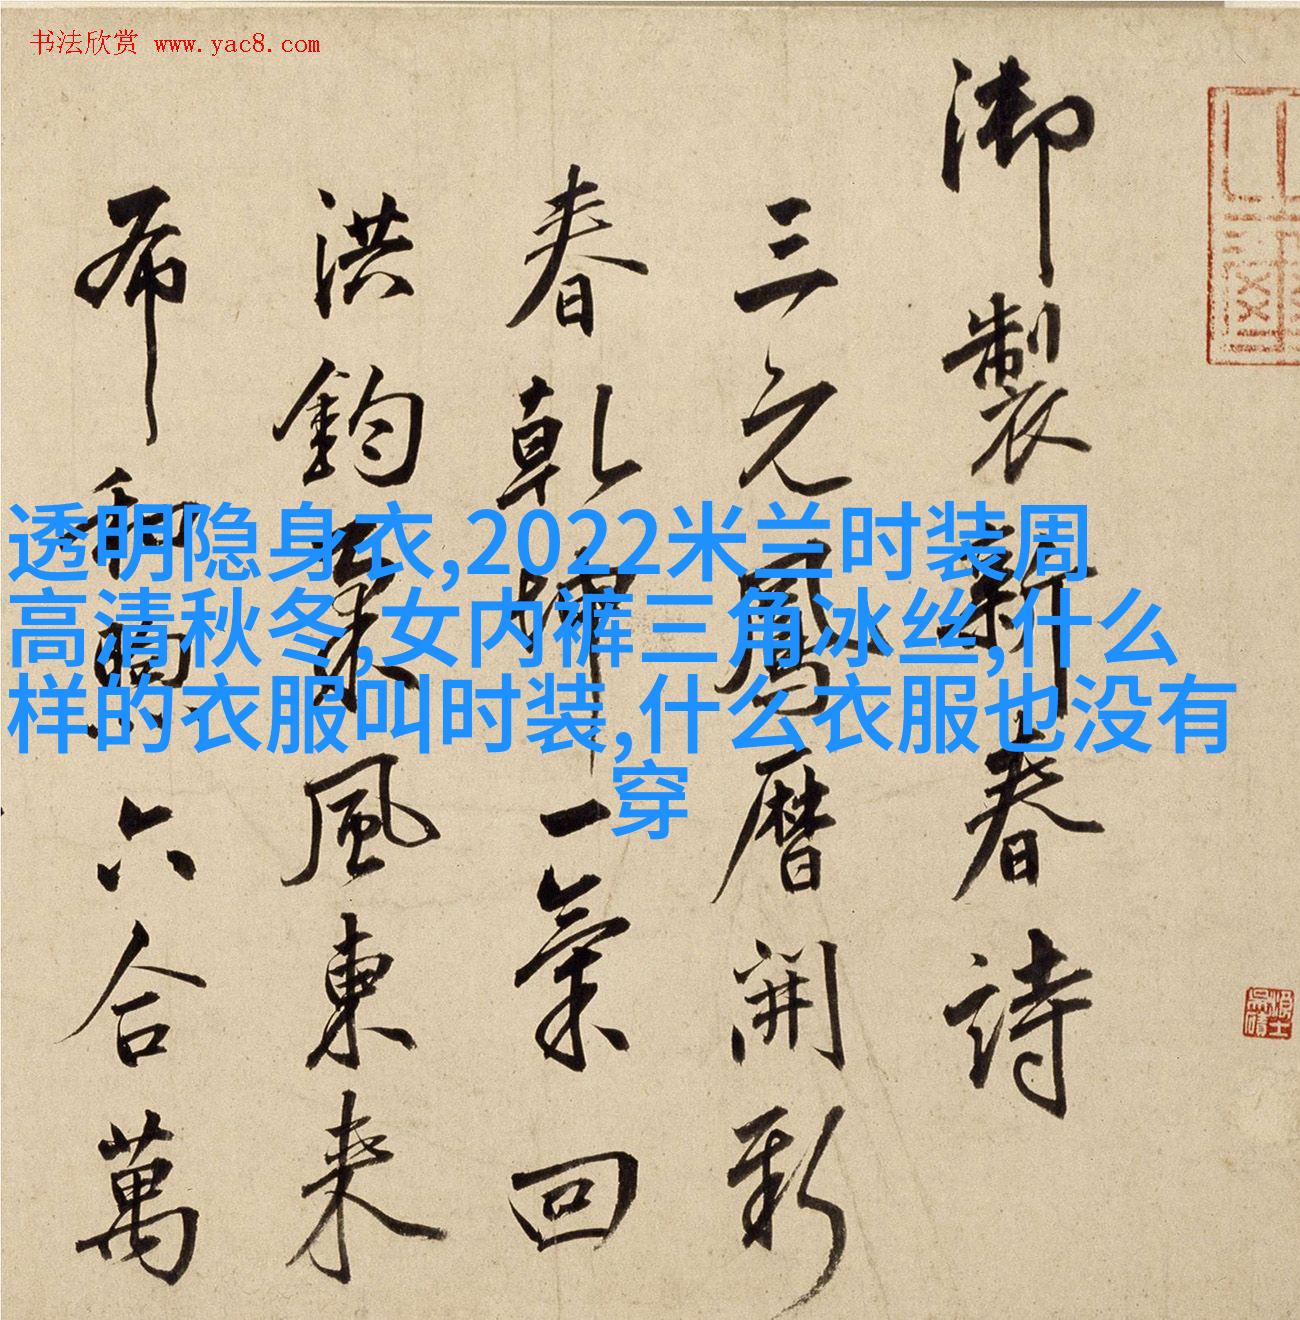 书法欣赏 www.yac8.com
御製新春詩
三元鳳曆開新
春乾坤一氣回
洪鈞東風東来
布和煦六合萬
透明隐身衣,2022米兰时装周
高清秋冬,女内裤三角冰丝,什么
样的衣服叫时装,什么衣服也没有
穿